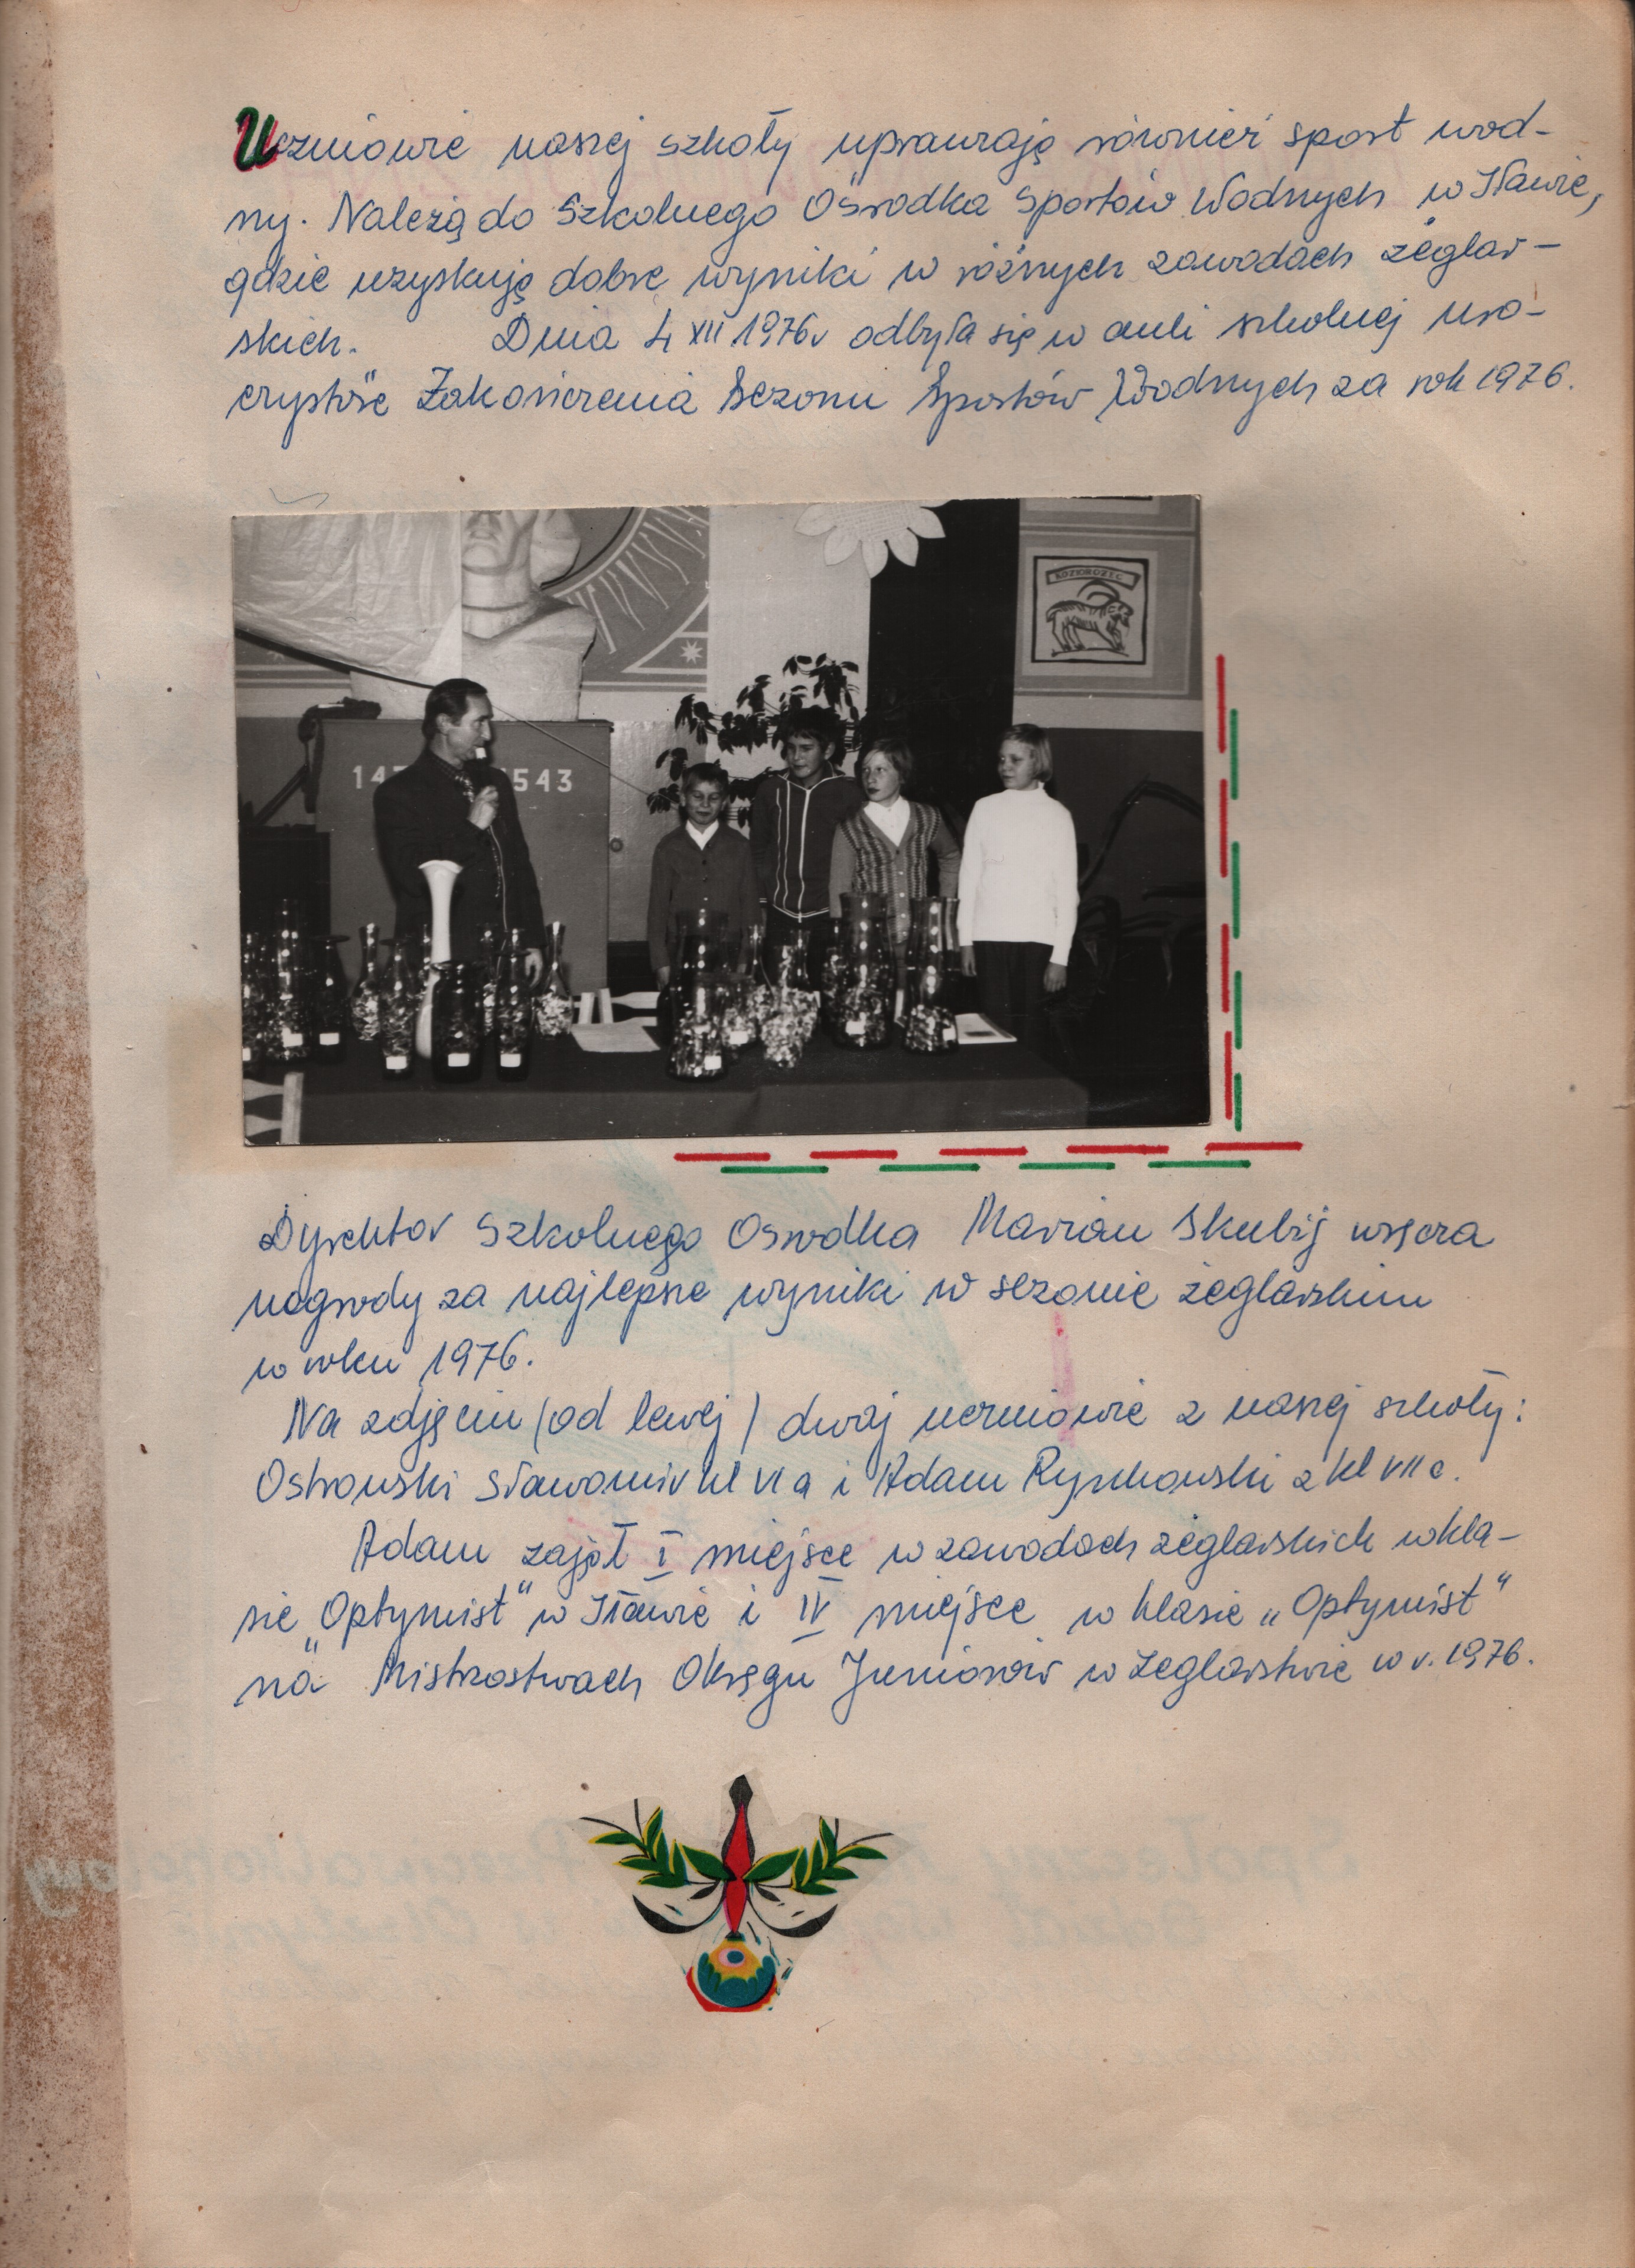 Uczniowie naszej szkoły uprawiają również sport wod-
ny. Należą do Szkolnego Ośrodka Sportów Wodnych w Iławie,
gdzie uzyskują dobre wyniki w różnych zawodach żeglar-
skich. Dnia 4 XII 1976r odbyła się w auli szkolnej uro-
czystość Zakończenia Sezonu Sportów Wodnych za rok 1976.
KOZIOROŻEC
147 543
Dyrektor Szkolnego Ośrodka Marian Skubij wręcza
nagrody za najlepsze wyniki w sezonie żeglarskim
w roku 1976.
Na zdjęciu (od lewej) dwaj uczniowie z naszej szkoły:
Ostrowski Sławomir kl VI a i Adam Rynkowski z kl VII c.
Adam zajął I miejsce w zawodach żeglarskich w kla-
sie „Optymist" w Iławie i IV miejsce w klasie „Optymist"
na Mistrzostwach Okręgu Juniorów w Żeglarstwie w r. 1976.